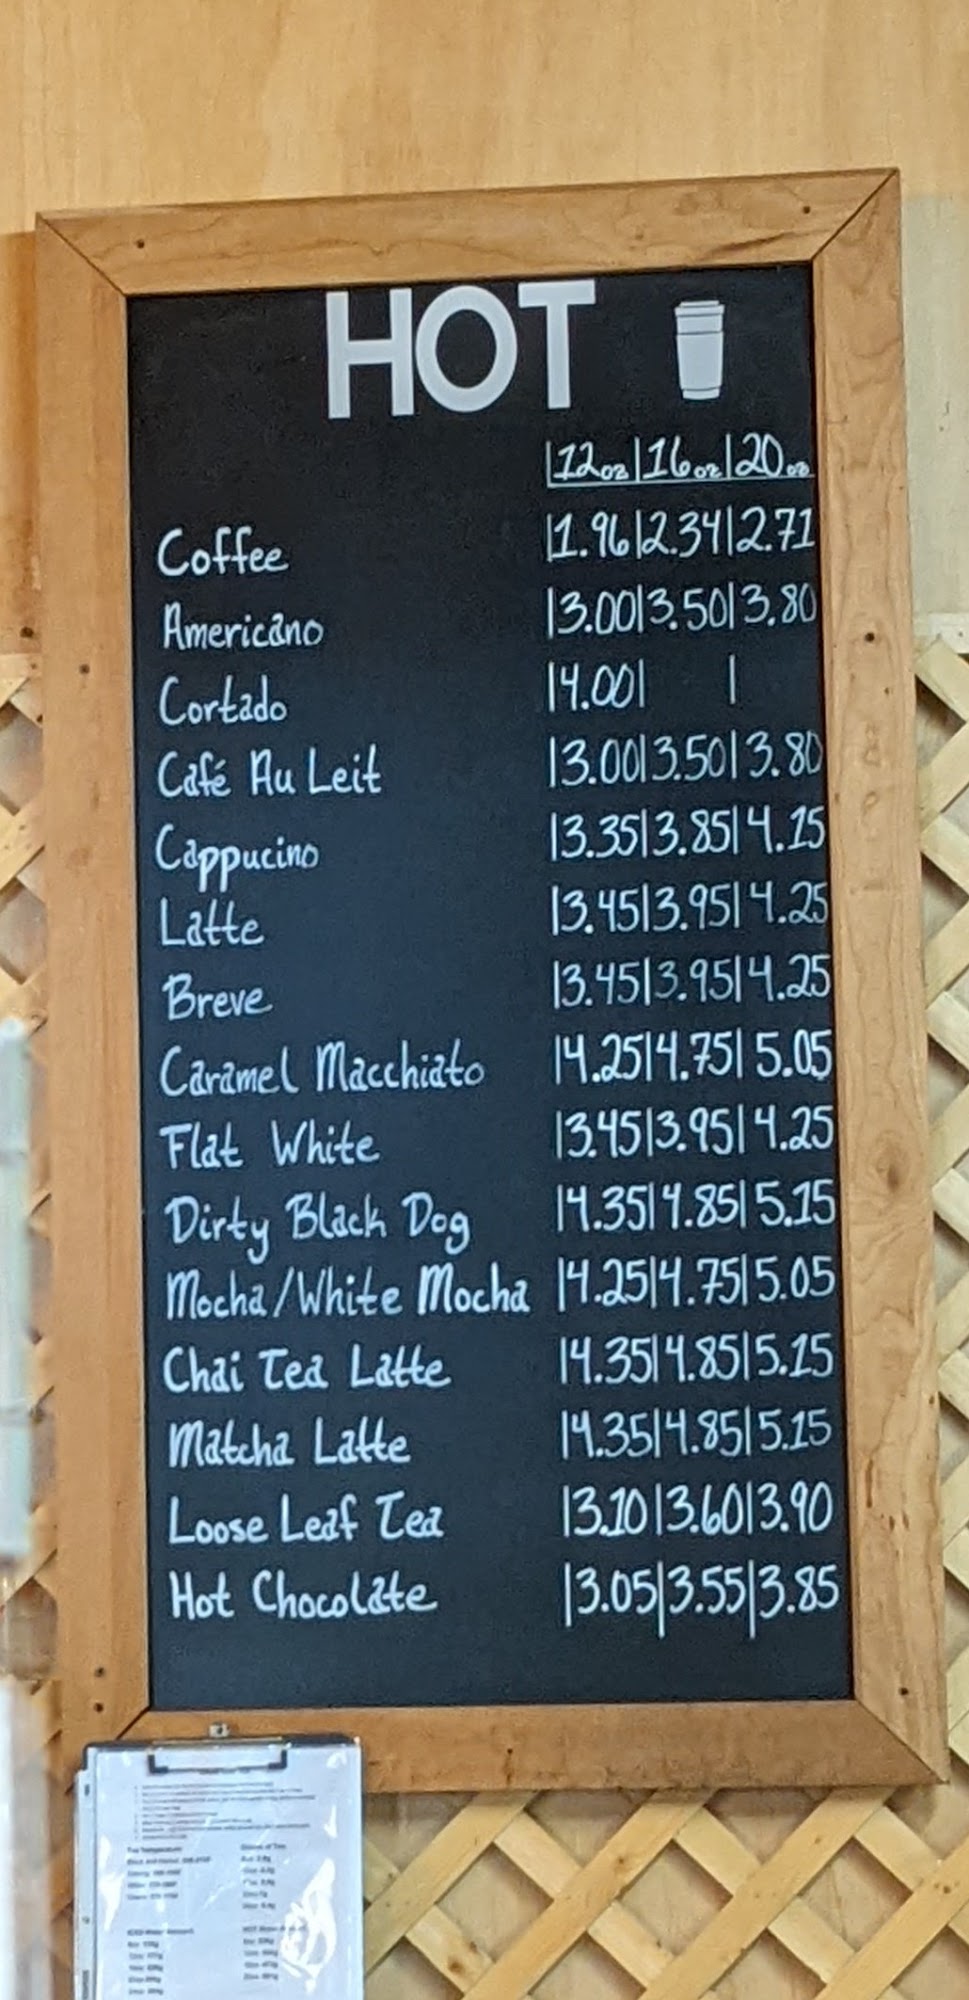 HOT
|12oz|16oz|20oz
Coffee |1.96|2.34|2.71
Americano |3.00|3.50|3.80
Cortado |4.00| |
Café Au Leit |3.00|3.50|3.80
Cappucino |3.35|3.85|4.15
Latte |3.45|3.95|4.25
Breve |3.45|3.95|4.25
Caramel Macchiato |4.25|4.75|5.05
Flat White |3.45|3.95|4.25
Dirty Black Dog |4.35|4.85|5.15
Mocha/White Mocha |4.25|4.75|5.05
Chai Tea Latte |4.35|4.85|5.15
Matcha Latte |4.35|4.85|5.15
Loose Leaf Tea |3.10|3.60|3.90
Hot Chocolate |3.05|3.55|3.85